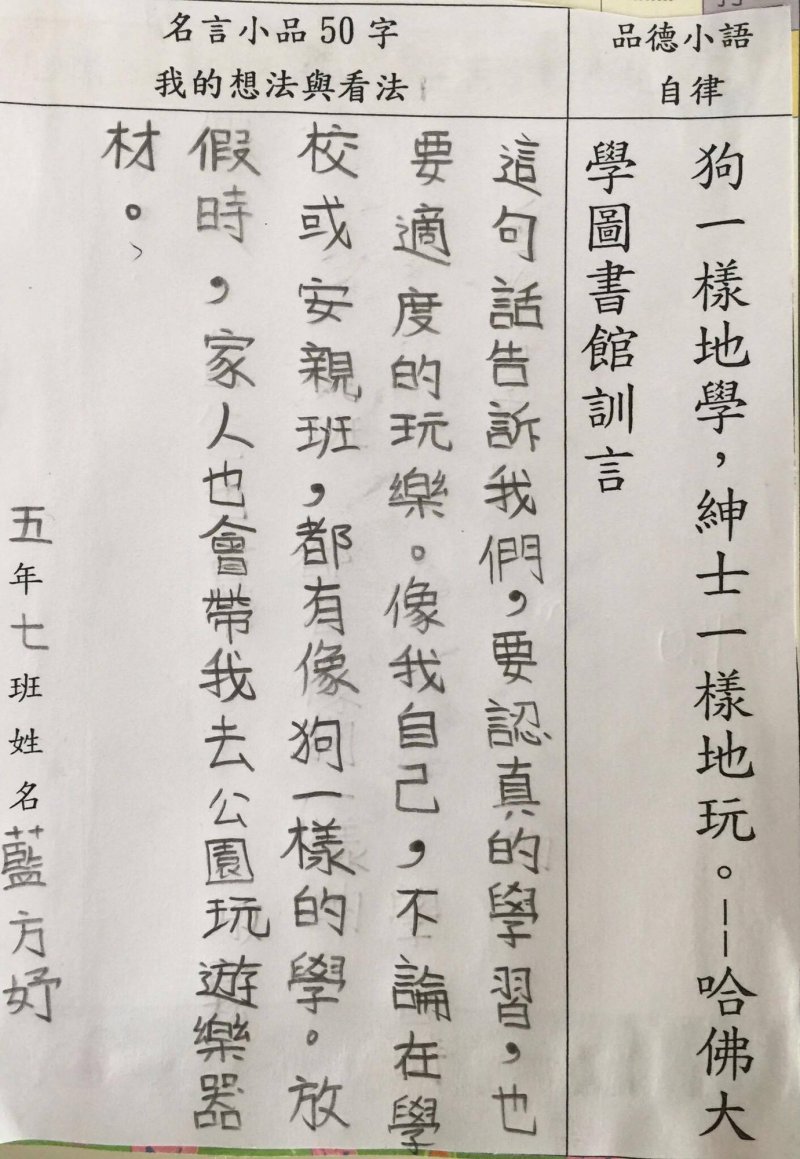 品德小語
自律
狗一樣地學，紳士一樣地玩。--哈佛大
學圖書館訓言
名言小品50字
我的想法與看法
這句話告訴我們，要認真的學習，也
要適度的玩樂。像我自己，不論在學
校或安親班，都有像狗一樣的學。放
假時，家人也會帶我去公園玩遊樂器
材。
五年七班姓名藍方妤